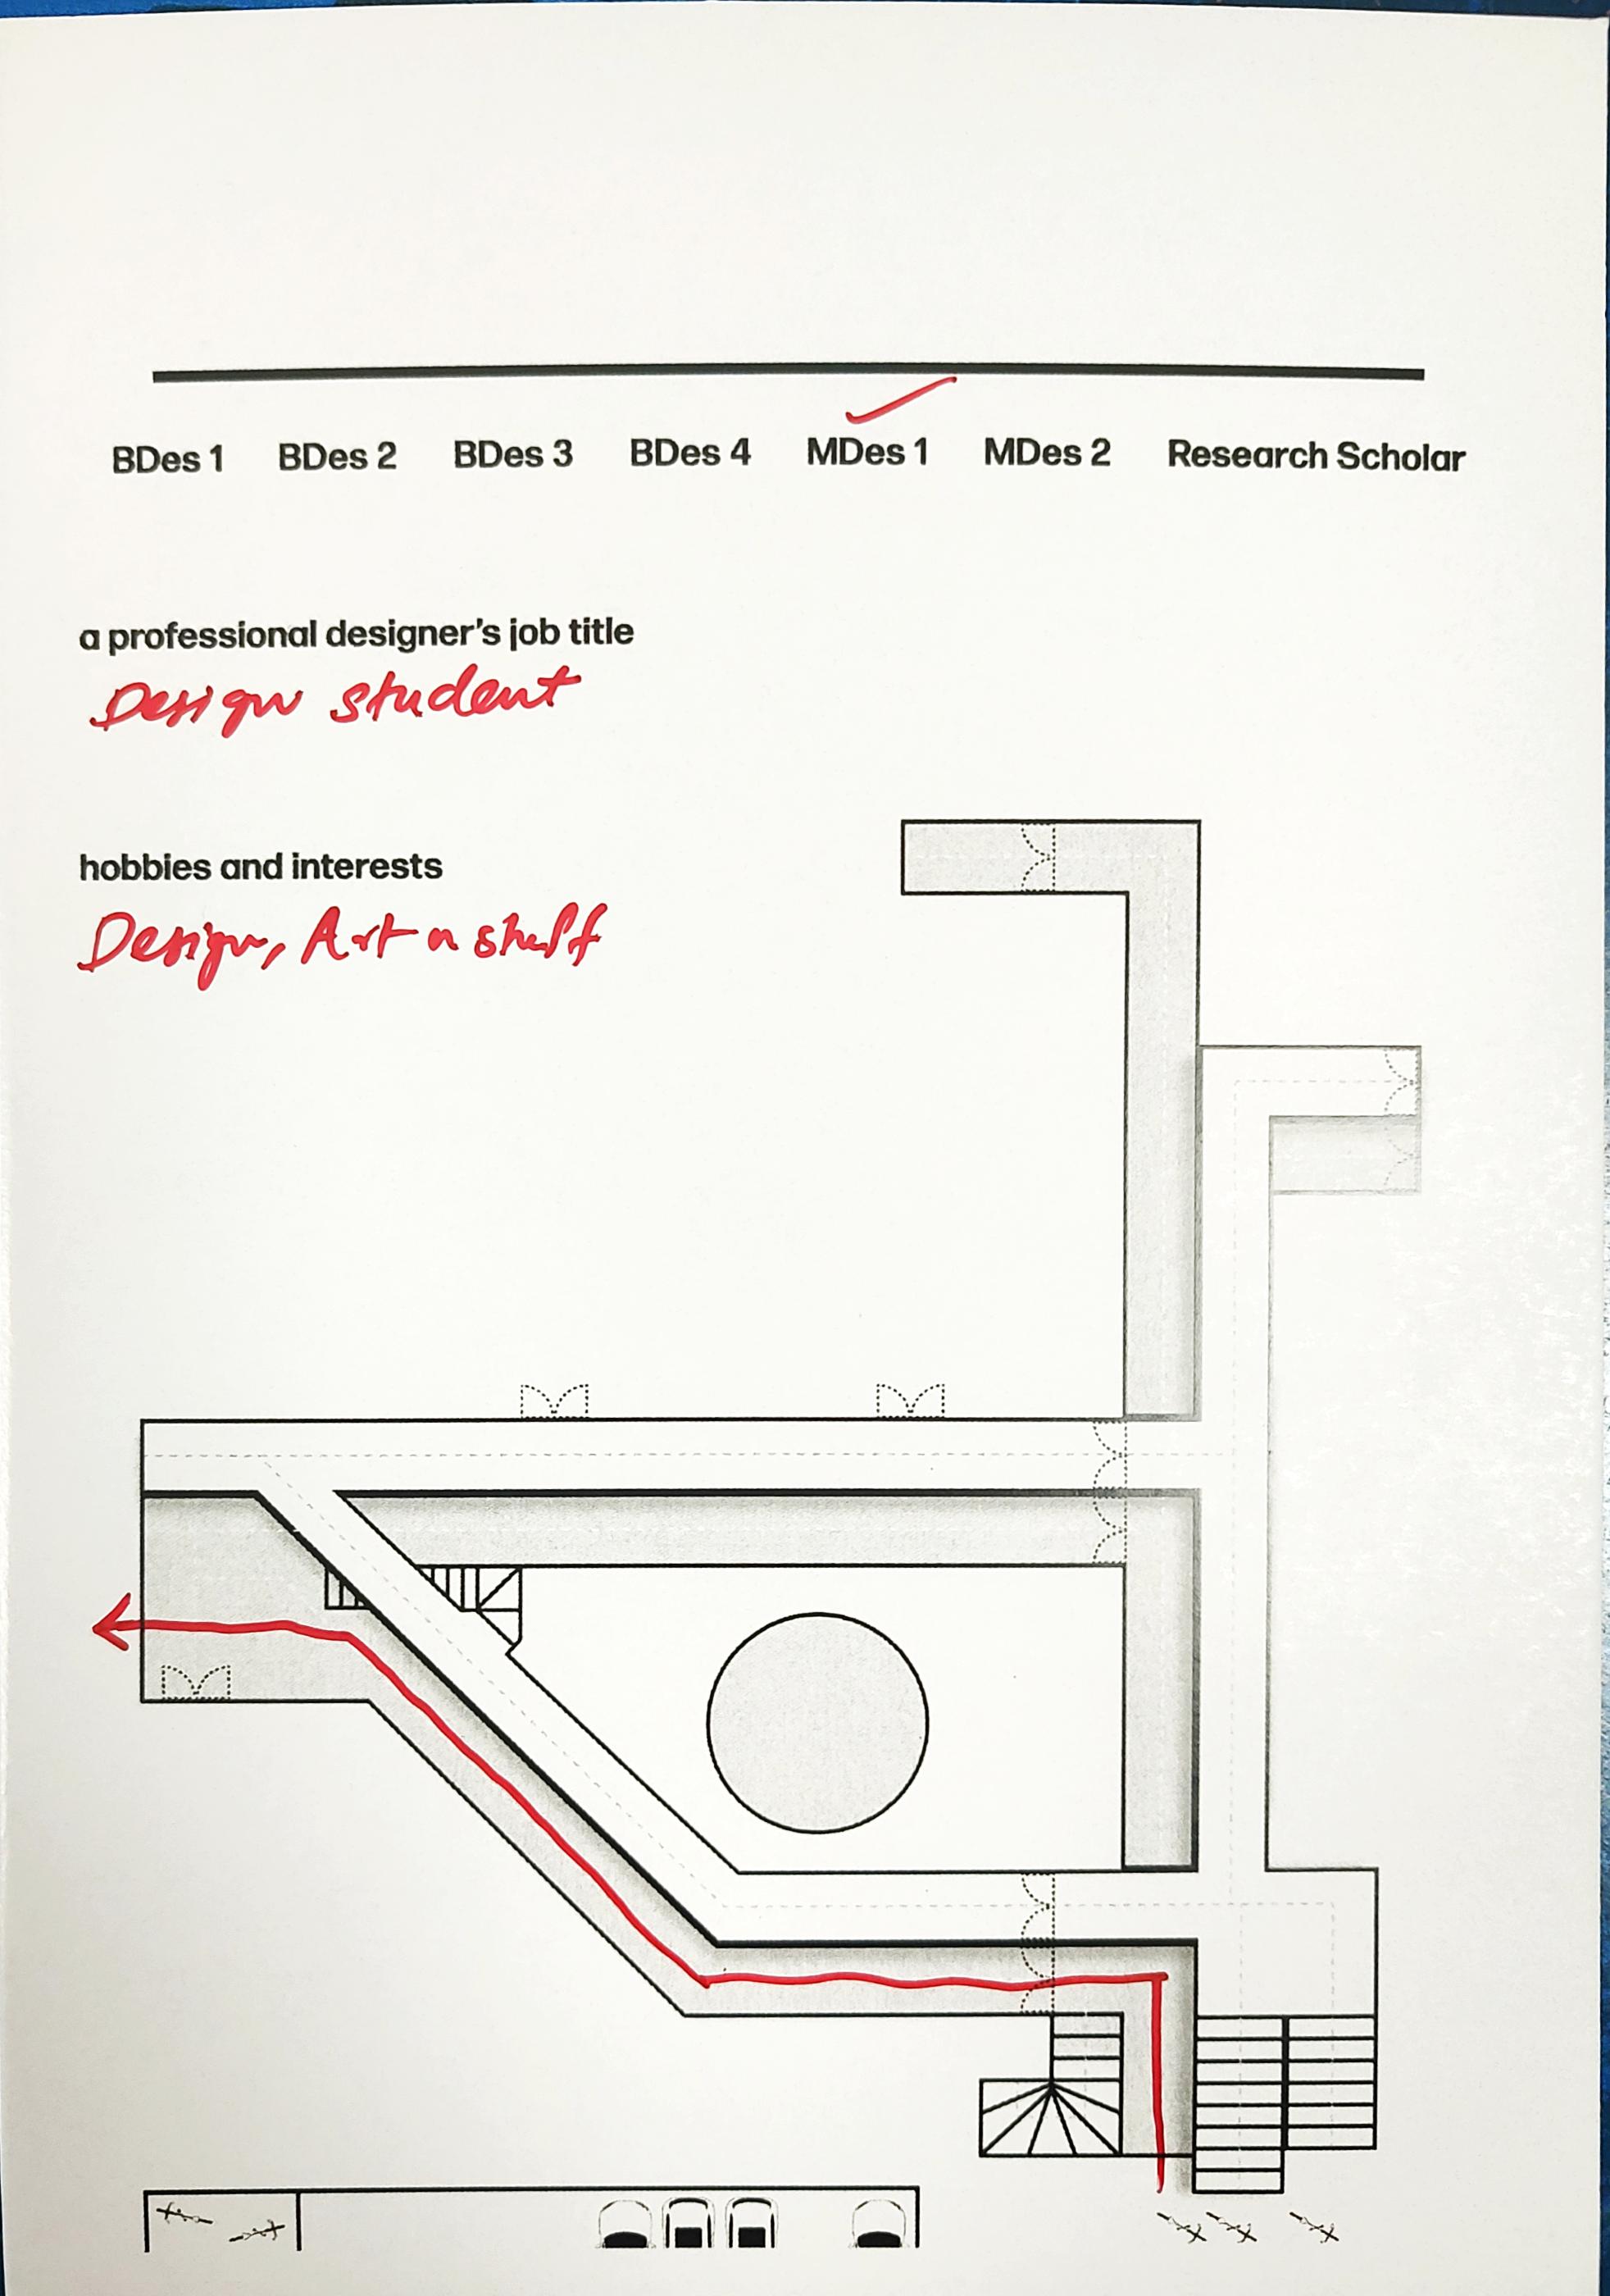 BDes 1 BDes 2 BDes 3 BDes 4 MDes 1 MDes 2 Research Scholar
a professional designer's job title
Design student
hobbies and interests
Design, Art n stuff